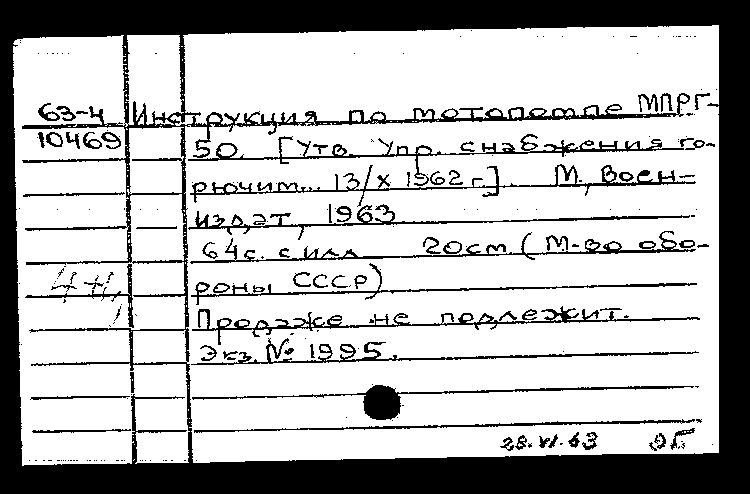 63-4 Инструкция по мотопомпе МПРГ-
10469 50. [Утв. Упр. снабжения го-
рючим... 13/X 1962 г.]. М., Воен-
издат, 1963
64с. с илл 20см (М-во обо-
роны СССР)
Продаже не подлежит.
Экз. № 1995.
28.VI.63